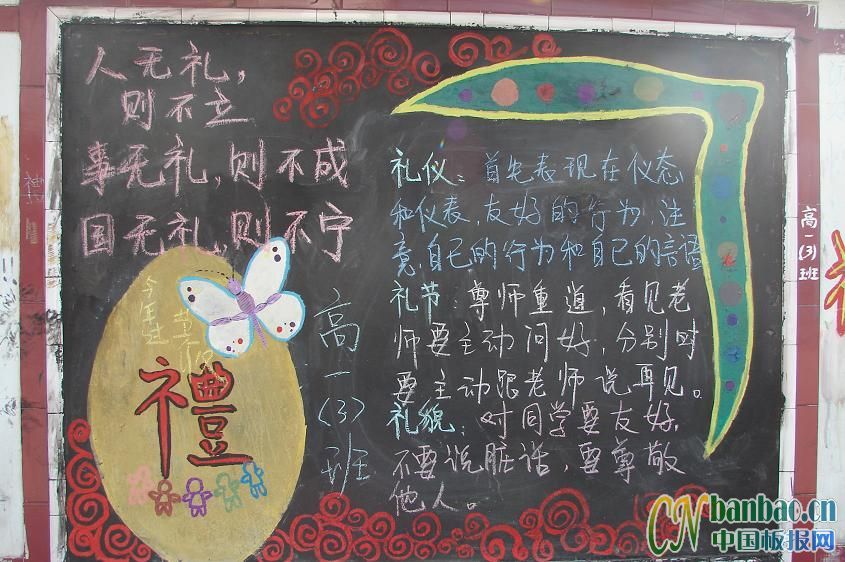 人无礼，
则不立
事无礼，则不成
国无礼，则不宁
禮
高一(3)班
礼仪：首先表现在仪态
和仪表，友好的行为，注
意，自己的行为和自己的言语
礼节：尊师重道，看见老
师要主动问好，分别时
要主动跟老师说再见。
礼貌：对同学要友好，
不要说脏话，要尊敬
他人。
高一(3)班
CN banbao.cn
中国板报网